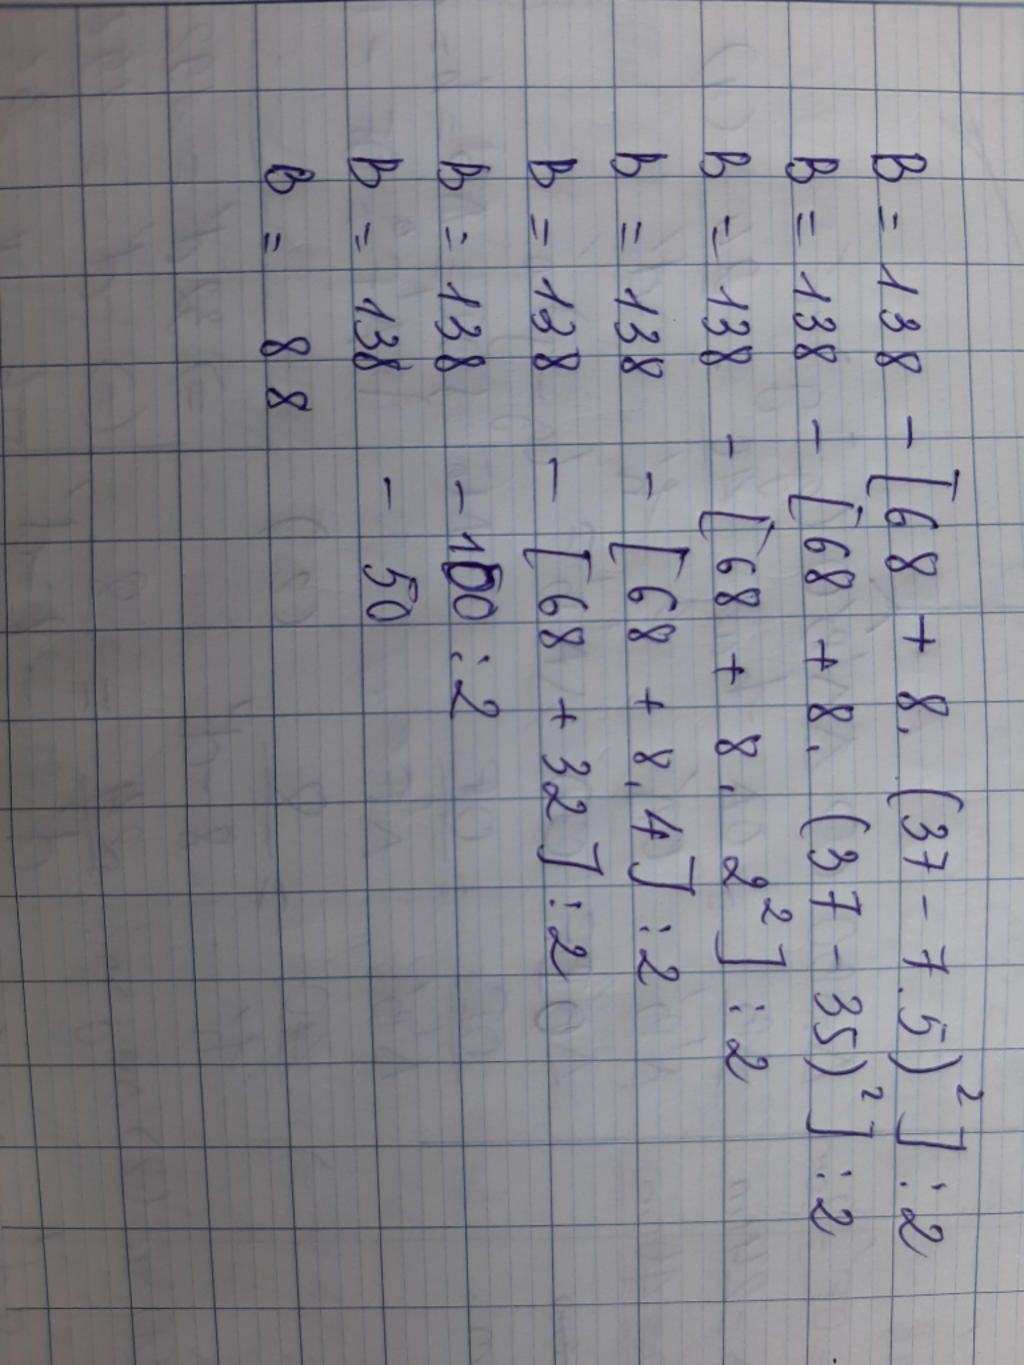 B = 138 - [68 + 8. (37 - 7.5)²] : 2
B = 138 - [68 + 8. (37 - 35)²] : 2
B = 138 - [68 + 8. 2²] : 2
B = 138 - [68 + 8.4] : 2
B = 138 - [68 + 32] : 2
B = 138 - 100 : 2
B = 138 - 50
B = 88